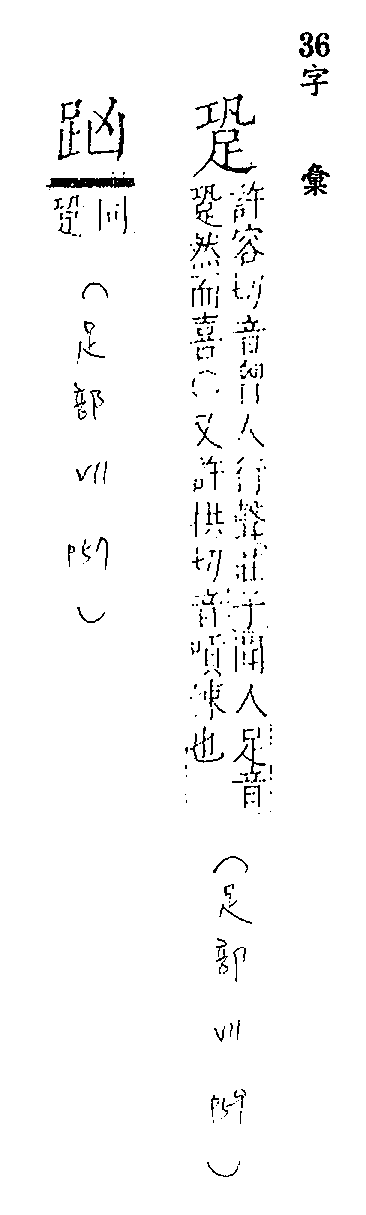 36字 彙
跫
許容切音胷人行聲莊子聞人足音
跫然而喜〇又許拱切音嗊悚也
（足部 VII P59）
同
跫
（足部 VII P57）